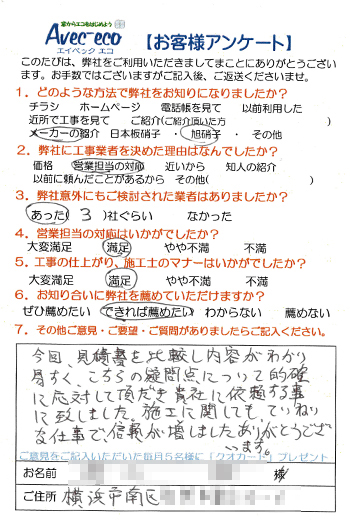 窓からエコをはじめよう
Avec-eco
エイベック エコ
【お客様アンケート】
このたびは、弊社をご利用いただきましてまことにありがとうござい
ます。お手数ではございますがご記入後、ご返送くださいませ。
1. どのような方法で弊社をお知りになりましたか?
チラシ ホームページ 電話帳を見て 以前利用した
近所で工事を見て ご紹介(ご紹介頂いた方 )
メーカーの紹介 日本板硝子・ 旭硝子・ その他
2. 弊社に工事業者を決めた理由はなんでしたか?
価格 営業担当の対応 近いから 知人の紹介
以前に頼んだことがあるから その他( )
3. 弊社意外にもご検討された業者はありましたか?
あった 3 社ぐらい なかった
4. 営業担当の対応はいかがでしたか?
大変満足 満足 やや不満 不満
5. 工事の仕上がり、施工士のマナーはいかがでしたか?
大変満足 満足 やや不満 不満
6. お知り合いに弊社を薦めていただけますか?
ぜひ薦めたい できれば薦めたい わからない 薦めない
7. その他ご意見・ご要望・ご質問がありましたらご記入ください。
今回、見積書を比較し内容がわかり
易すく、こちらの疑問点について的確
に応対して頂だき貴社に依頼する事
に致しました。施工に関しても、ていねい
な仕事で、信頼が増しましたありがとうござ
います。
ご意見をご記入いただいた毎月5名様に「クオカード」プレゼント
お名前 様
ご住所 横浜市南区